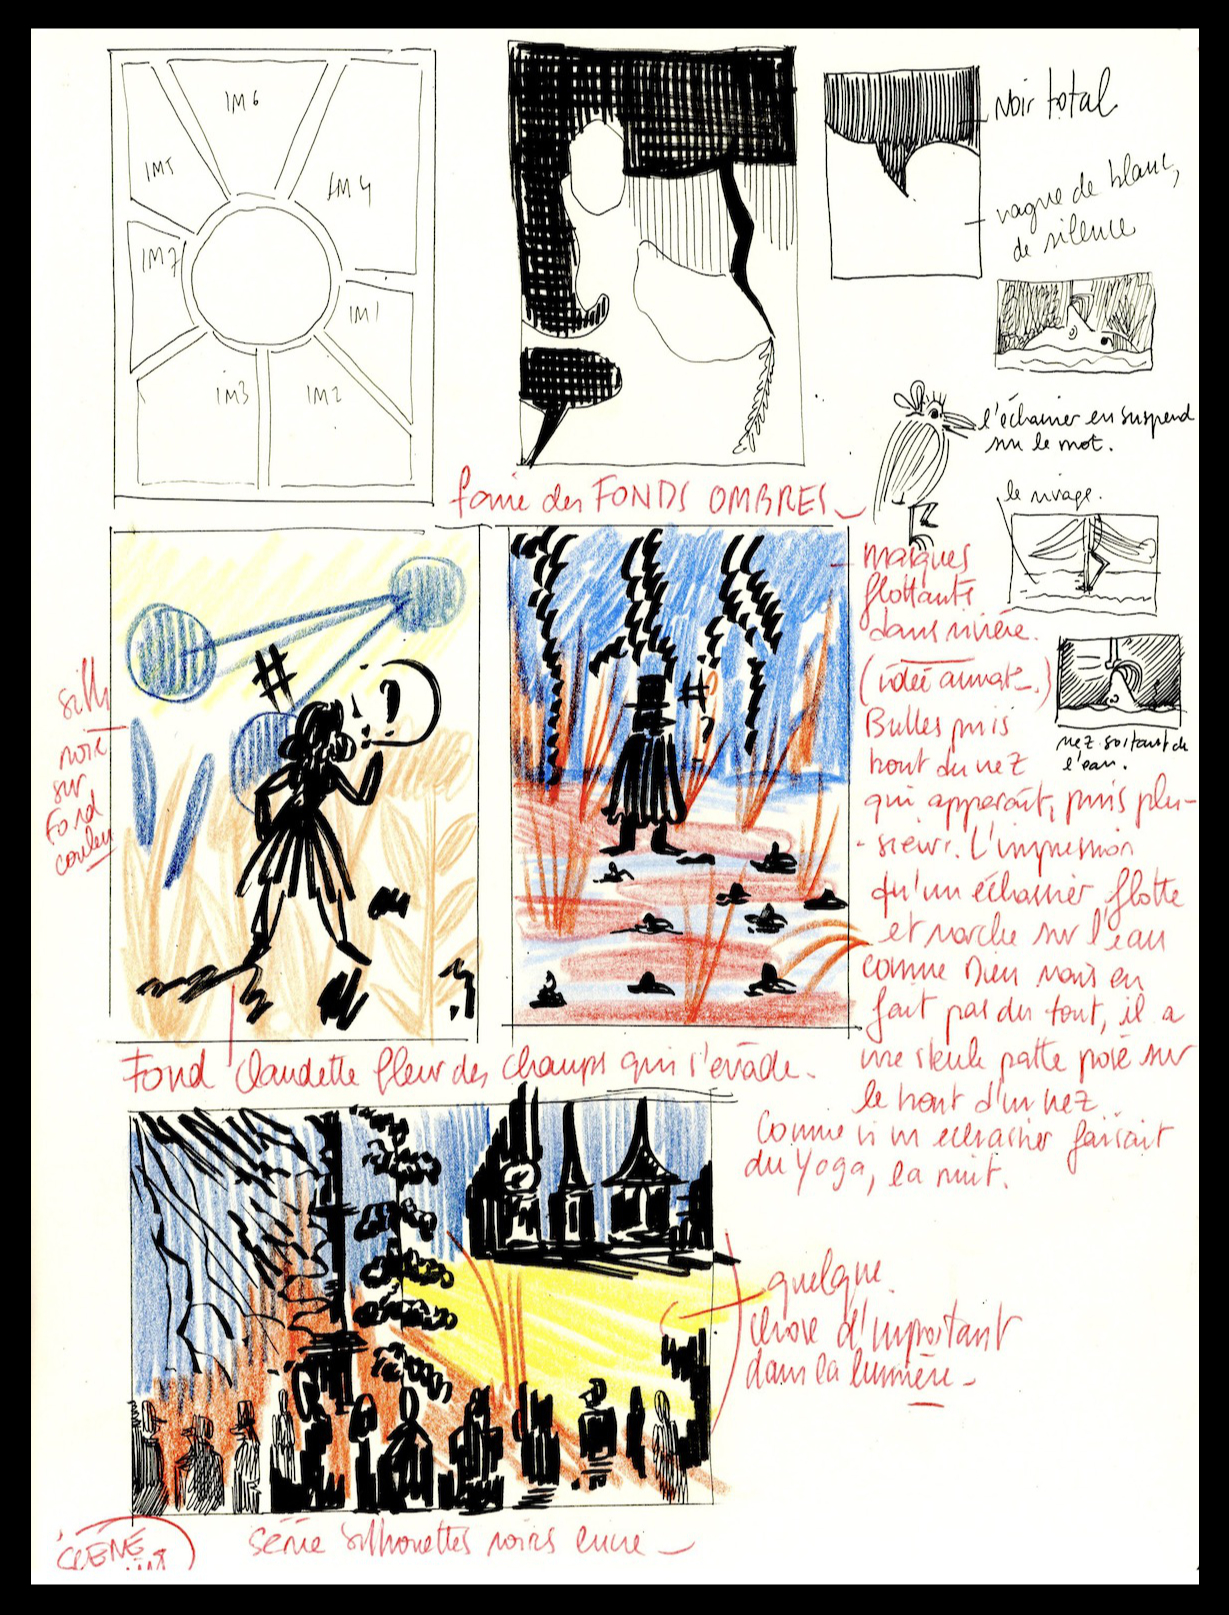 IM6
IM5
IM4
IM7
IM1
IM3
IM2
Noir total
vague de blanc,
de silence
l'échassier en suspend
sur le mot.
le rivage.
faire des FONDS OMBRES_
masques
flottants
dans rivière.
(idée animat_.)
Bulles puis
bout du nez
qui apparaît, puis plu-
-sieurs. L'impression
qu'un échassier flotte
et marche sur l'eau
comme Dieu mais en
fait pas du tout, il a
une seule patte posé sur
le bout d'un nez
Comme si un échassier faisait
du Yoga, la nuit.
nez sortant de
l'eau.
silh
noire
sur
Fond
couleur
#
?
#
?
Fond Claudette fleur des champs qui s'évade.
quelque
chose d'important
dans la lumière_
SCENE
série silhouettes noires encre_